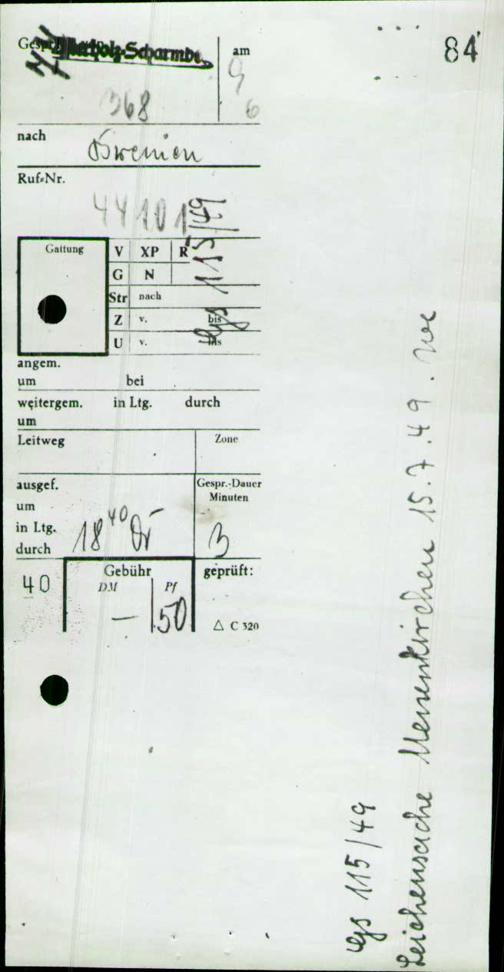 84
Osterholz-Scharmbe
am
9
6
368
nach
Bremen
Ruf=Nr.
44101
Gattung
V XP R
G N
Str nach
Z v. bis
U v. bis
115/49
angem.
um bei
weitergem. in Ltg. durch
um
Leitweg
Zone
ausgef.
um
in Ltg.
durch
18 40
Gespr.-Dauer
Minuten
3
40
Gebühr
DM Pf
— 50
geprüft:
△ C 320
115/49
Leichensache 15.7.49.